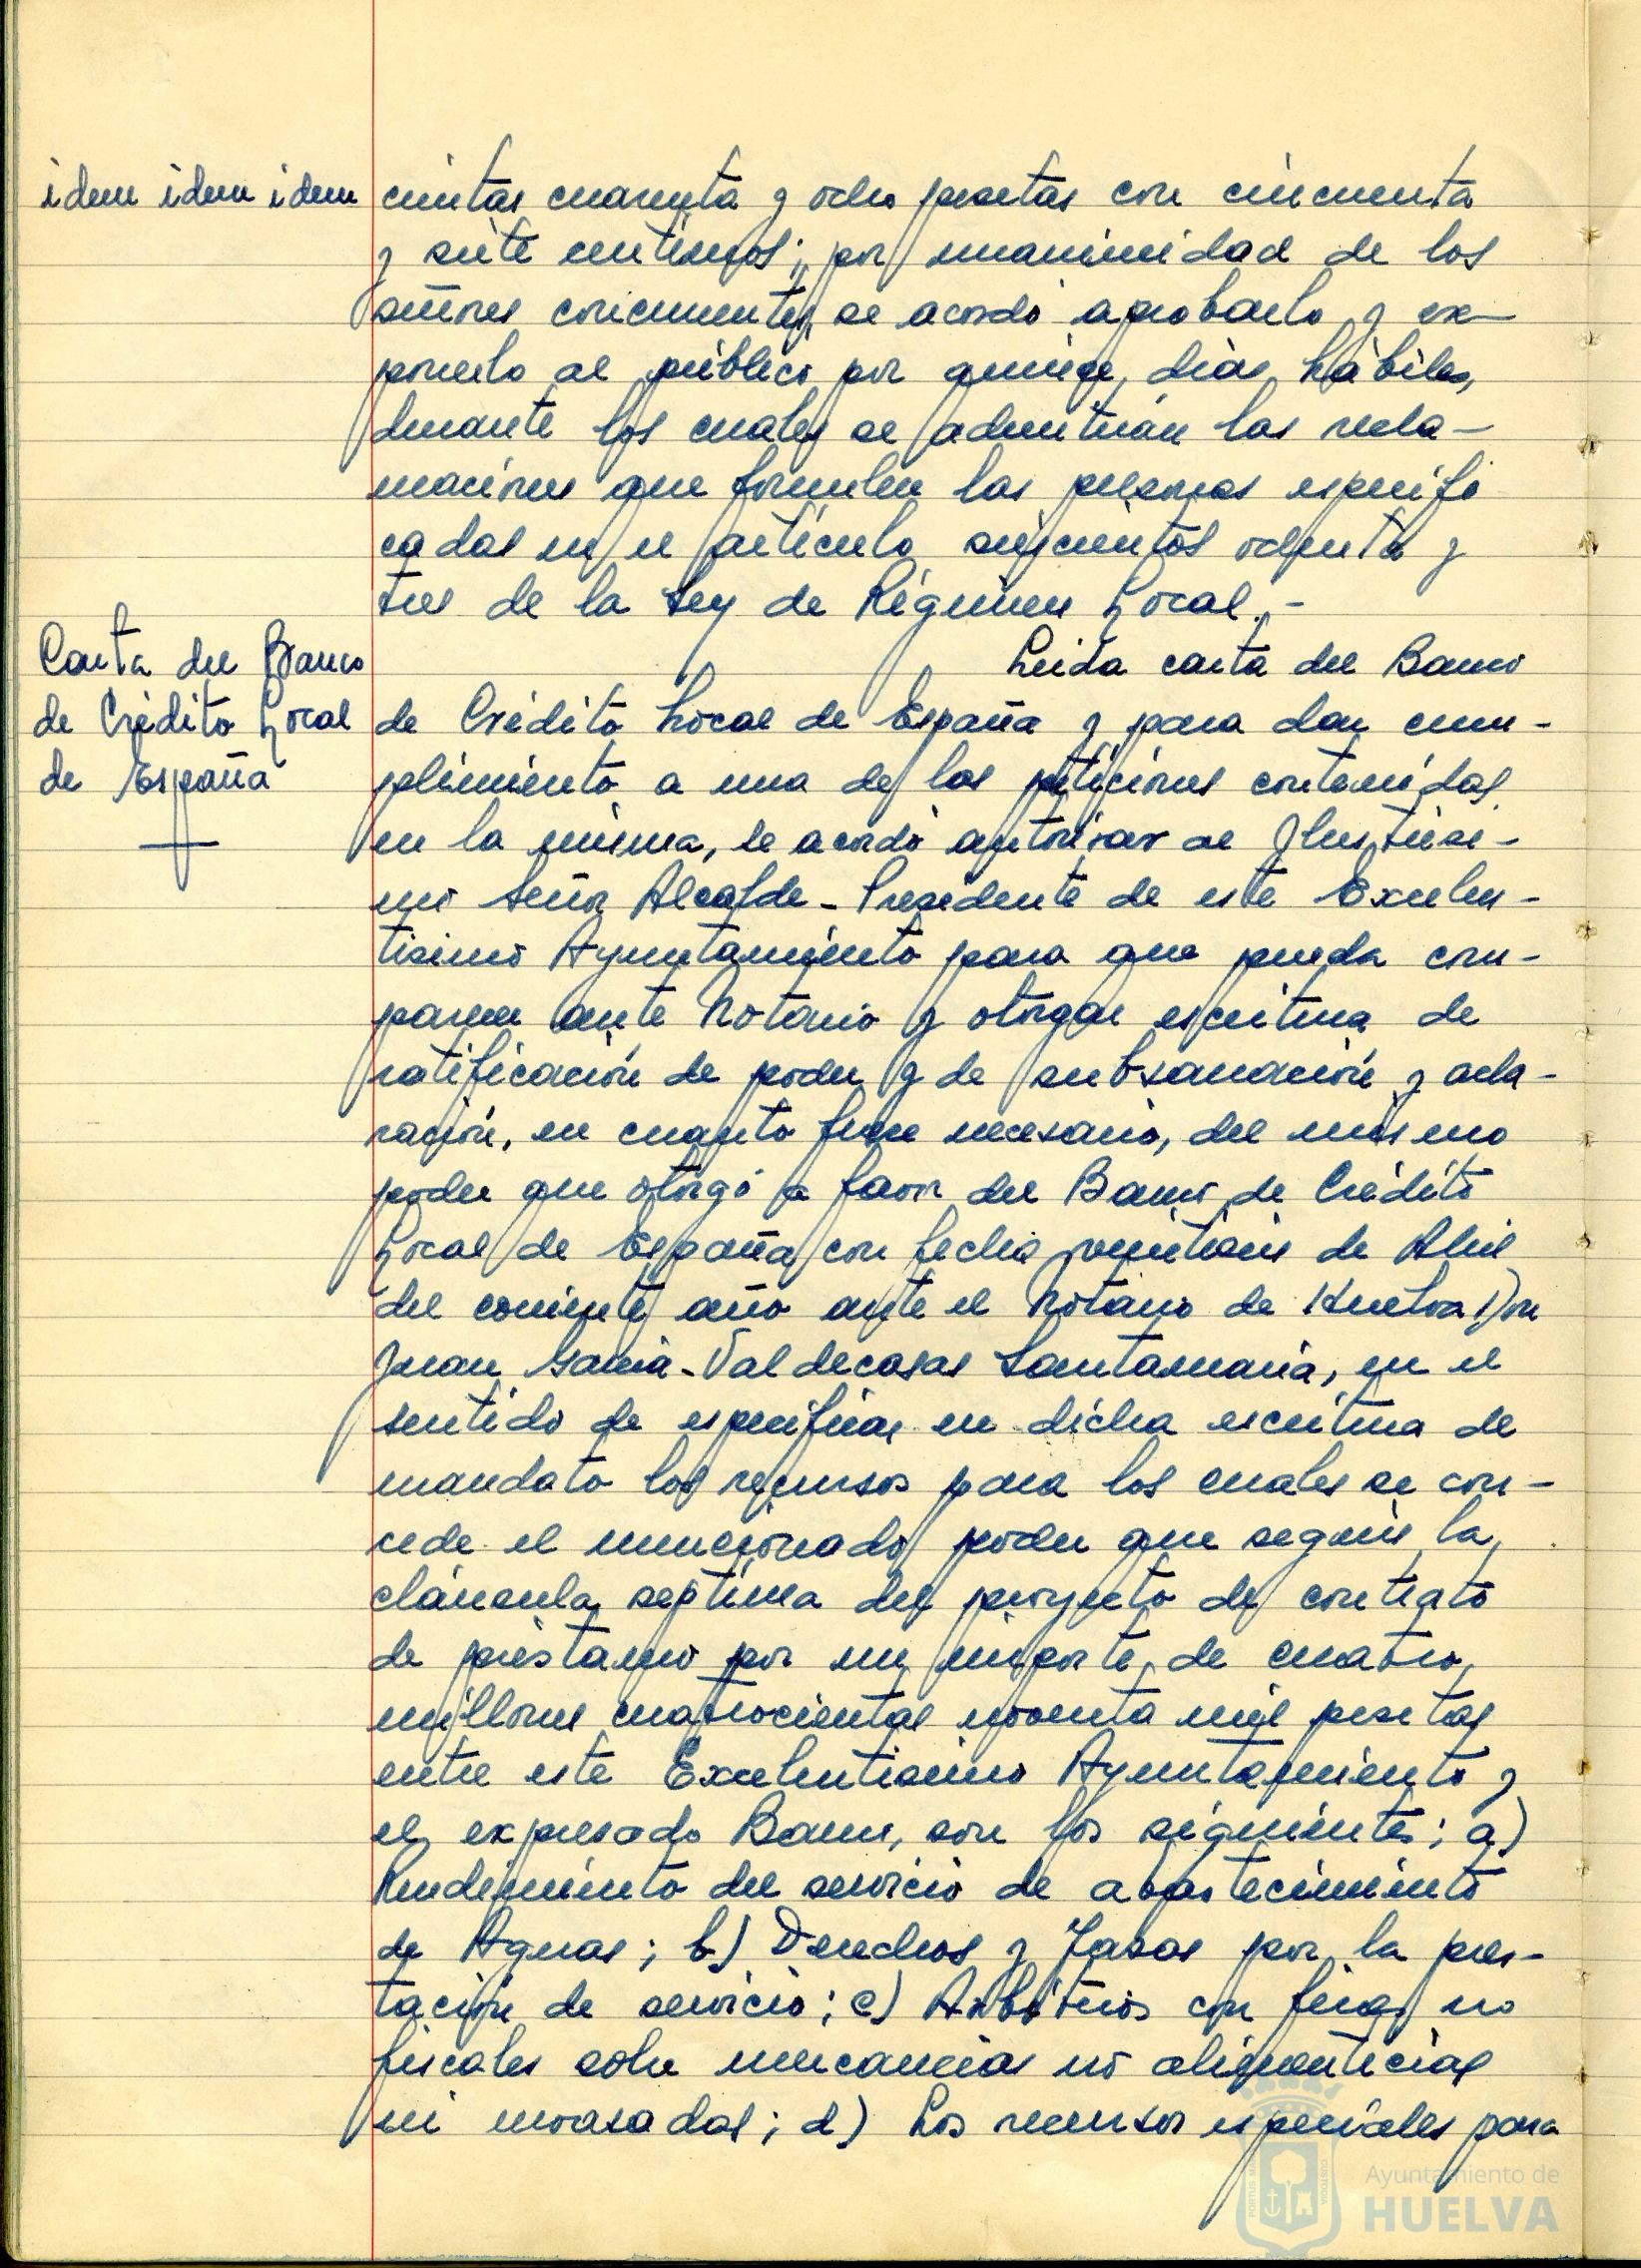 idem idem idem
cientas cuarenta y ocho pesetas con cincuenta
y siete centimos; por unanimidad de los
señores concurrentes, se acordó aprobarlo y ex-
ponerlo al público por quince días hábiles,
durante los cuales se admitirán las recla-
maciones que formulen las personas especifi
cadas en el artículo seiscientos ochenta y
tres de la Ley de Régimen Local.-
Carta del Banco
de Crédito Local
de España
Leida carta del Banco
de Crédito Local de España y para dar cum-
plimiento a una de las peticiones contenidas
en la misma, se acordó autorizar al Ilustrisi-
mo Señor Alcalde-Presidente de este Excelen-
tisimo Ayuntamiento para que pueda com-
parecer ante Notario y otorgar escritura de
ratificación de poder y de subsanación y acla-
ración, en cuanto fuese necesario, del mismo
poder que otorgó a favor del Banco de Crédito
Local de España con fecha veintiseis de Abril
del corriente año ante el Notario de Huelva Don
Juan García-Valdecasas Santamaria, en el
sentido de especificar en dicha escritura de
mandato los recursos para los cuales se con-
cede el mencionado poder que según la
cláusula séptima del proyecto de contrato
de préstamo por un importe de cuatro
millones cuatrocientas noventa mil pesetas
entre este Excelentisimo Ayuntamiento y
el expresado Banco, son los siguientes: a)
Rendimiento del servicio de abastecimiento
de Aguas; b) Derechos y Tasas por la pres-
tación de servicio; c) Arbitrios con fines no
fiscales sobre mercancias no alimenticias
ni envasadas; d) Los recursos especiales para
Ayuntamiento de
HUELVA